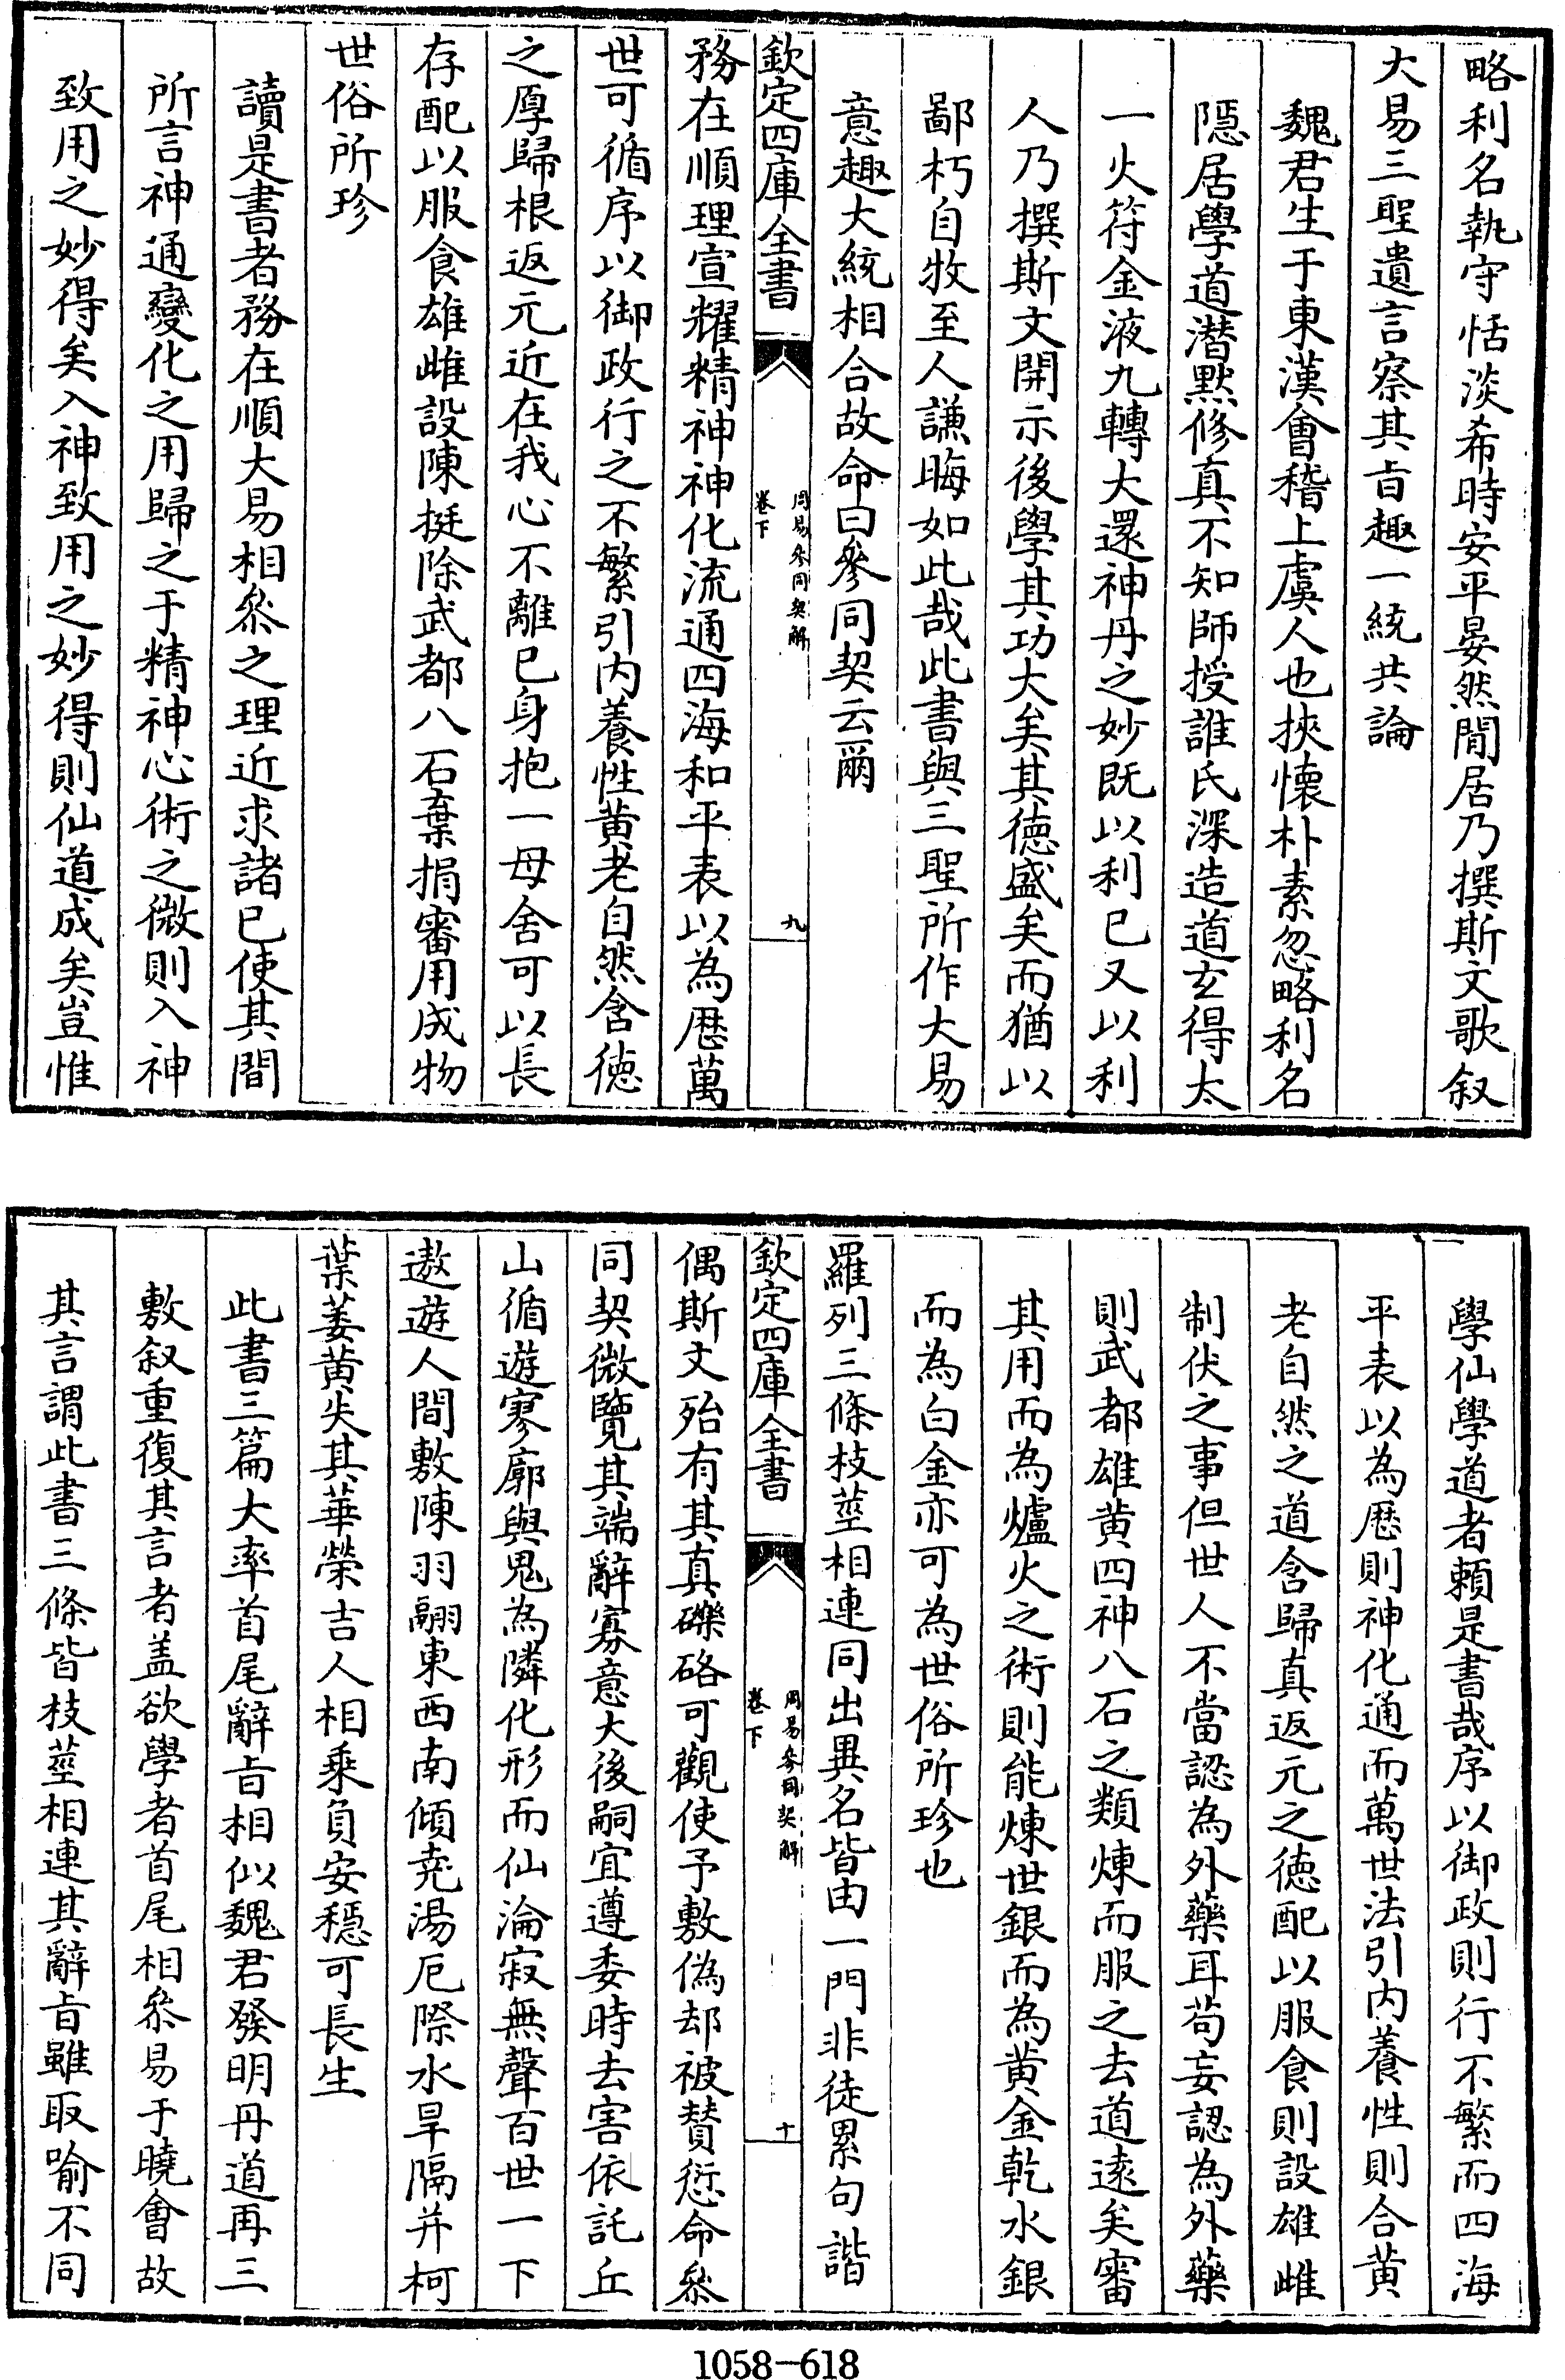 略利名執守恬淡希時安平晏然閒居乃撰斯文歌叙
大易三聖遺言察其旨趣一統共論
魏君生于東漢會稽上虞人也挾懷朴素忽略利名
隱居學道潛默修真不知師授誰氏深造道玄得太
一火符金液九轉大還神丹之妙既以利已又以利
人乃撰斯文開示後學其功大矣其德盛矣而猶以
鄙朽自牧至人謙晦如此哉此書與三聖所作大易
意趣大統相合故命曰參同契云爾
欽定四庫全書
周易參同契解
卷下
九
務在順理宣耀精神神化流通四海和平表以為厯萬
世可循序以御政行之不繁引内養性黄老自然含德
之厚歸根返元近在我心不離已身抱一毋舍可以長
存配以服食雄雌設陳挺除武都八石棄捐審用成物
世俗所珍
讀是書者務在順大易相叅之理近求諸已使其間
所言神通變化之用歸之于精神心術之微則入神
致用之妙得矣入神致用之妙得則仙道成矣豈惟
學仙學道者頼是書哉序以御政則行不繁而四海
平表以為厯則神化通而萬世法引内養性則合黄
老自然之道含歸真返元之德配以服食則設雄雌
制伏之事但世人不當認為外藥耳苟妄認為外藥
則武都雄黄四神八石之類煉而服之去道逺矣審
其用而為爐火之術則能煉世銀而為黄金乾水銀
而為白金亦可為世俗所珍也
羅列三條枝莖相連同出異名皆由一門非徒累句諧
欽定四庫全書
周易參同契解
卷下
十
偶斯文殆有其真礫硌可觀使予敷偽却被贊愆命叅
同契微覽其端辭寡意大後嗣宜遵委時去害依託丘
山循遊寥廓與鬼為隣化形而仙淪寂無聲百世一下
遨遊人間敷陳羽翮東西南傾堯湯厄際水旱隔并柯
葉萎黄失其華榮吉人相乘負安穩可長生
此書三篇大率首尾辭旨相似魏君發明丹道再三
敷叙重復其言者盖欲學者首尾相叅易于曉會故
其言謂此書三條皆枝莖相連其辭旨雖取喻不同
1058-618